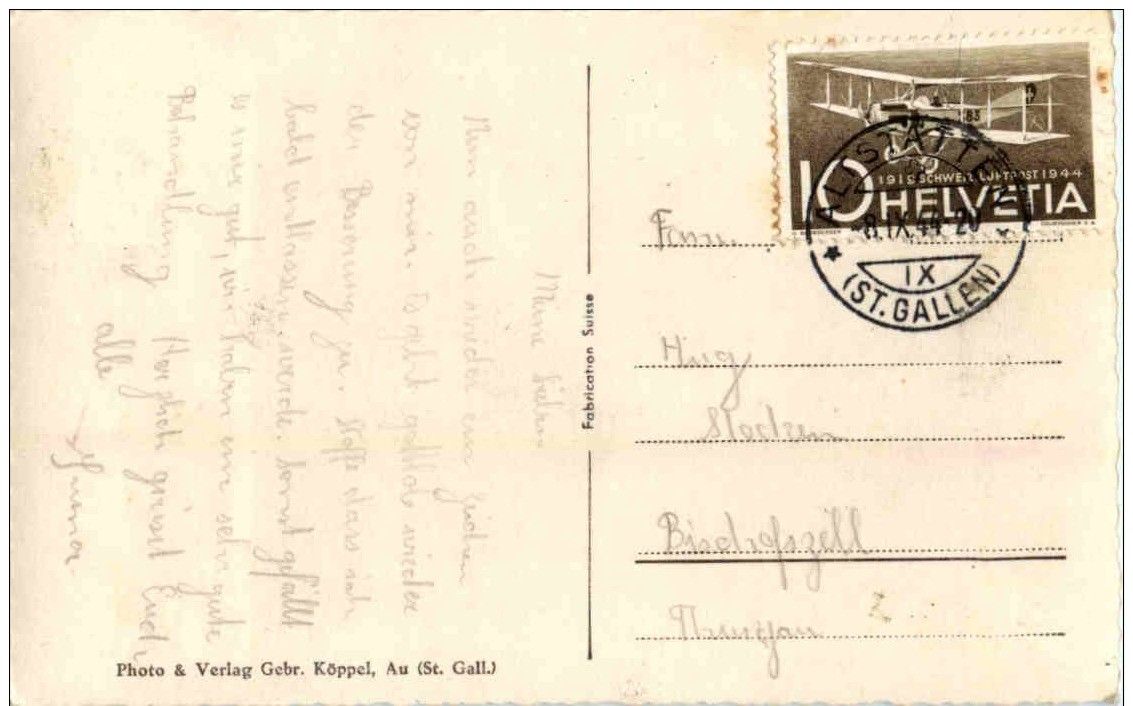 Meine Lieben
Nun auch wieder ein Zeichen
von mir. Es geht gottlob wieder
der Besserung zu. Hoffe dass ich
bald entlassen werde. Sonst gefällt
es mir gut, wir haben eine sehr gute
Behandlung Herzlich grüsst Euch
alle
Photo & Verlag Gebr. Köppel, Au (St. Gall.)
Fabrication Suisse
10
1919 SCHWEIZ. LUFTPOST 1944
HELVETIA
ALTSTÄTTEN
-8.IX.44-20
IX
(ST.GALLEN)
Fam.
Hug
Stocken
Bischofszell
Thurgau